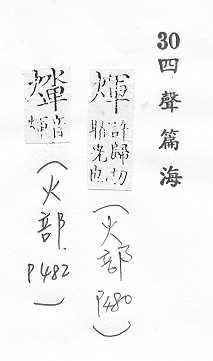 30四聲篇海
煇 許歸切
光也
(火部 P480)
音輝
(火部 P482)